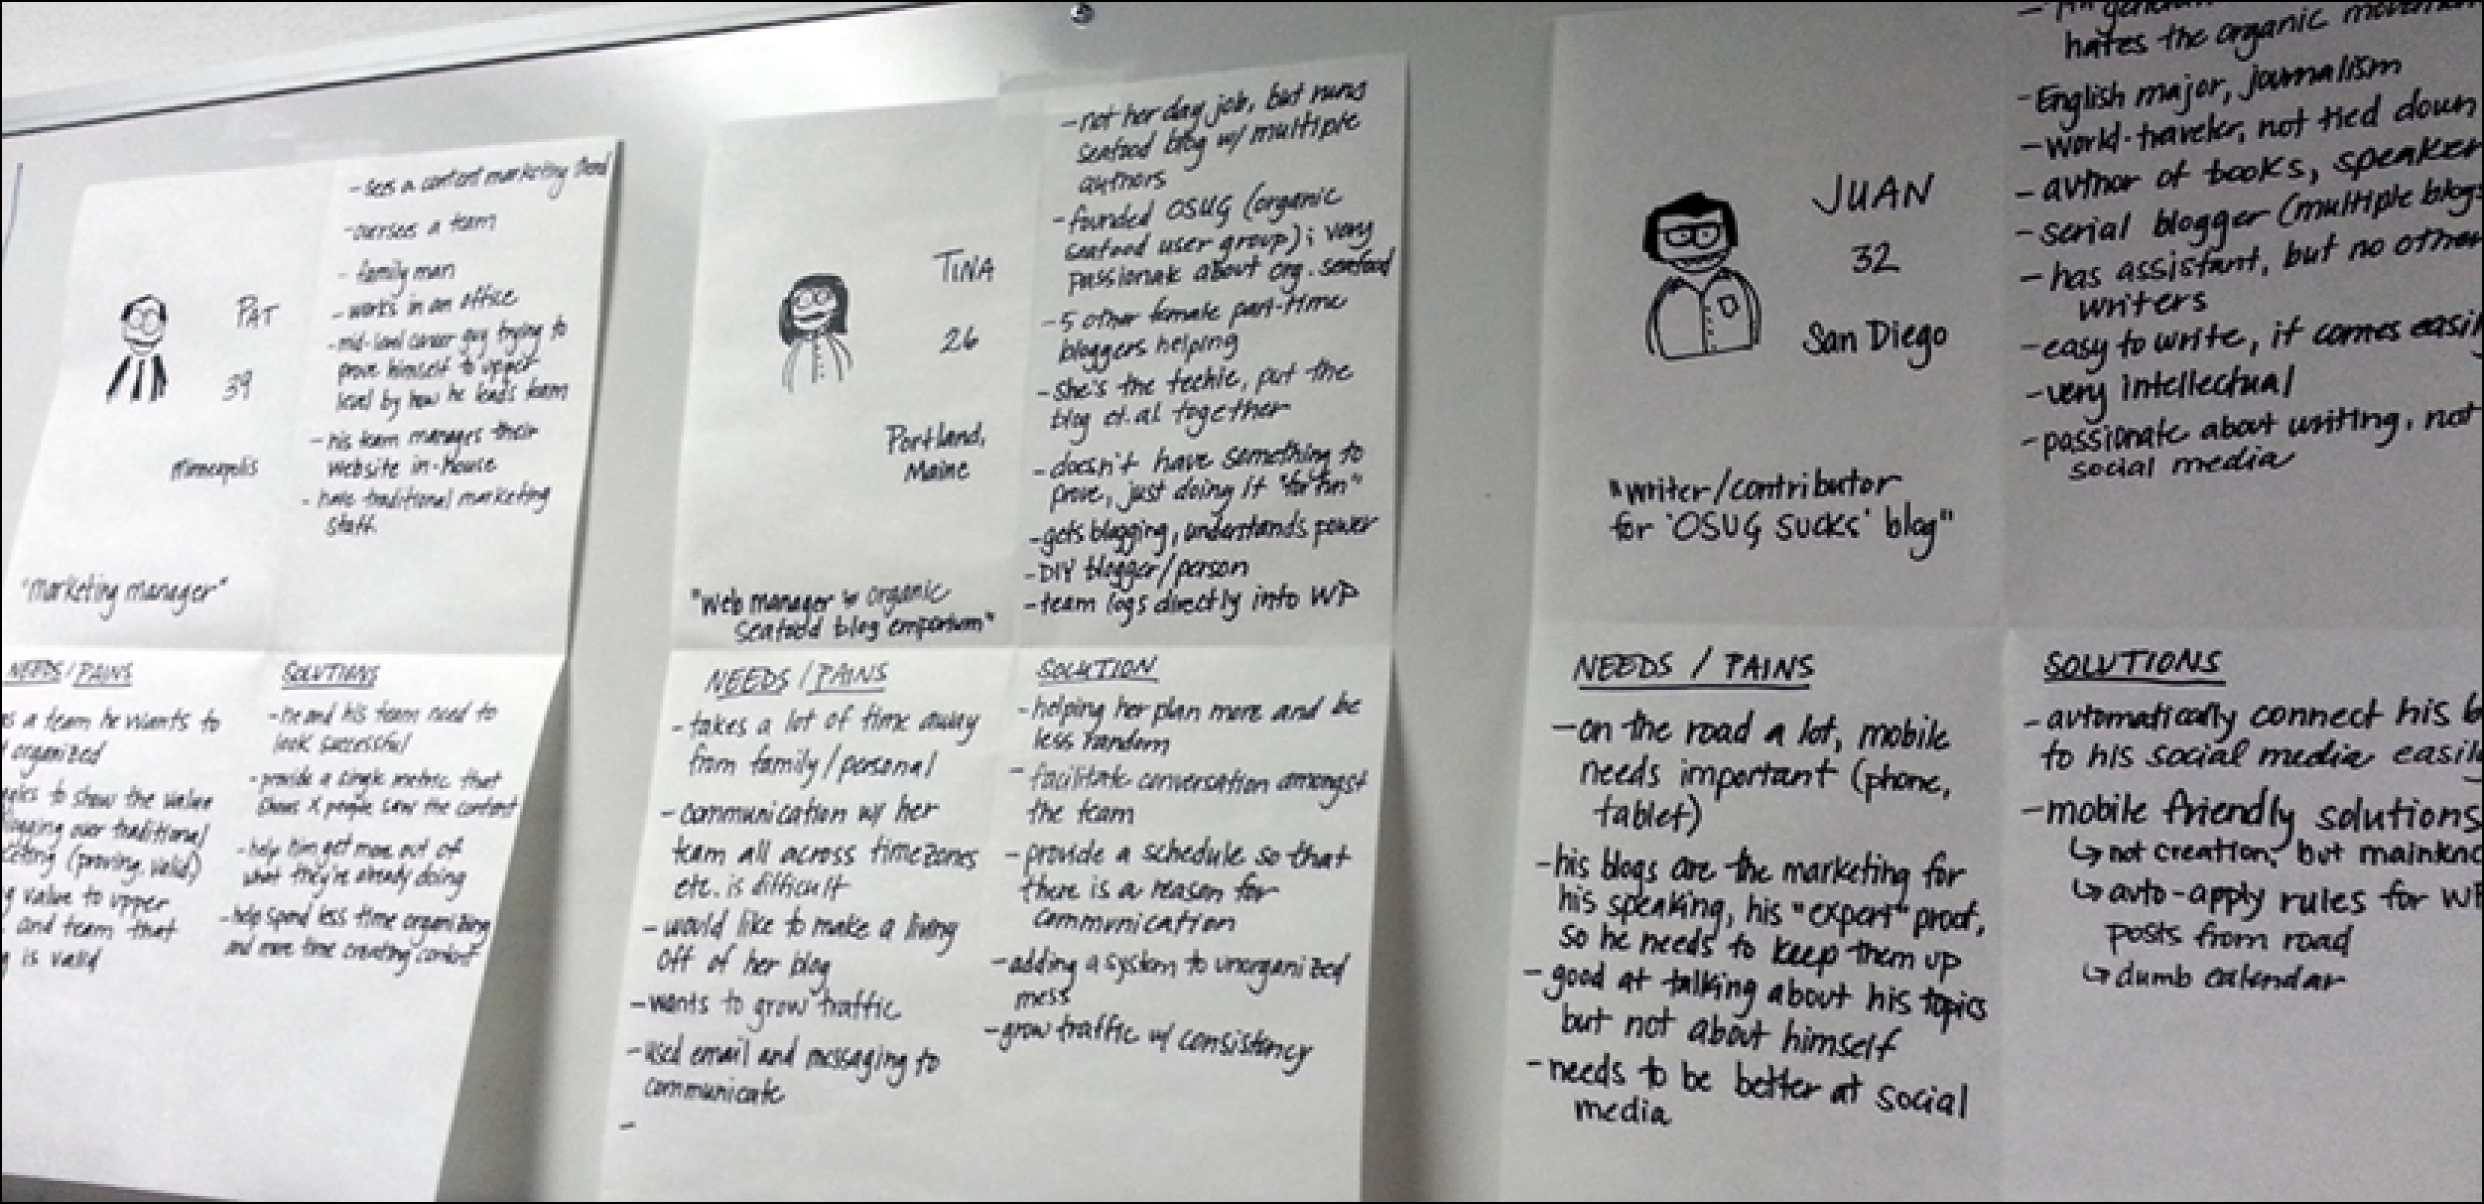 PAT
39
Minneapolis
"marketing manager"
- sees a content marketing trend
- oversees a team
- family man
- works in an office
- mid-level career guy trying to
prove himself to upper
level by how he leads team
- his team manages their
website in-house
- have traditional marketing
staff
NEEDS / PAINS
a team he wants to
organized
to show the value
over traditional
(proving, valid)
value to upper
and team that
is valid
SOLUTIONS
- he and his team need to
look successful
- provide a single metric that
shows X people saw the content
- help him get more out of
what they're already doing
- help spend less time organizing
and more time creating content
TINA
26
Portland,
Maine
"web manager organic
seafood blog emporium"
- not her day job, but runs
seafood blog w/ multiple
authors
- founded OSUG (organic
seafood user group); very
passionate about org. seafood
- 5 other female part-time
bloggers helping
- she's the techie, put the
blog et. al together
- doesn't have something to
prove, just doing it "for fun"
- gets blogging, understands power
- DIY blogger/person
- team logs directly into WP
NEEDS / PAINS
- takes a lot of time away
from family/personal
- communication w/ her
team all across timezones
etc. is difficult
- would like to make a living
off of her blog
- wants to grow traffic
- used email and messaging to
communicate
-
SOLUTION
- helping her plan more and be
less random
- facilitate conversation amongst
the team
- provide a schedule so that
there is a reason for
communication
- adding a system to unorganized
mess
- grow traffic w/ consistency
JUAN
32
San Diego
"writer/contributor
for 'OSUG SUCKS' blog"
hates the organic movement
- English major, journalism
- world-traveler, not tied down
- author of books, speaker
- serial blogger (multiple blogs
- has assistant, but no other
writers
- easy to write, it comes easily
- very intellectual
- passionate about writing, not
social media
NEEDS / PAINS
- on the road a lot, mobile
needs important (phone,
tablet)
- his blogs are the marketing for
his speaking, his "expert" proof,
so he needs to keep them up
- good at talking about his topics
but not about himself
- needs to be better at social
media
SOLUTIONS
- automatically connect his
to his social media easily
- mobile friendly solutions
↳ not creation, but
↳ auto-apply rules for WP
posts from road
↳ dumb calendar